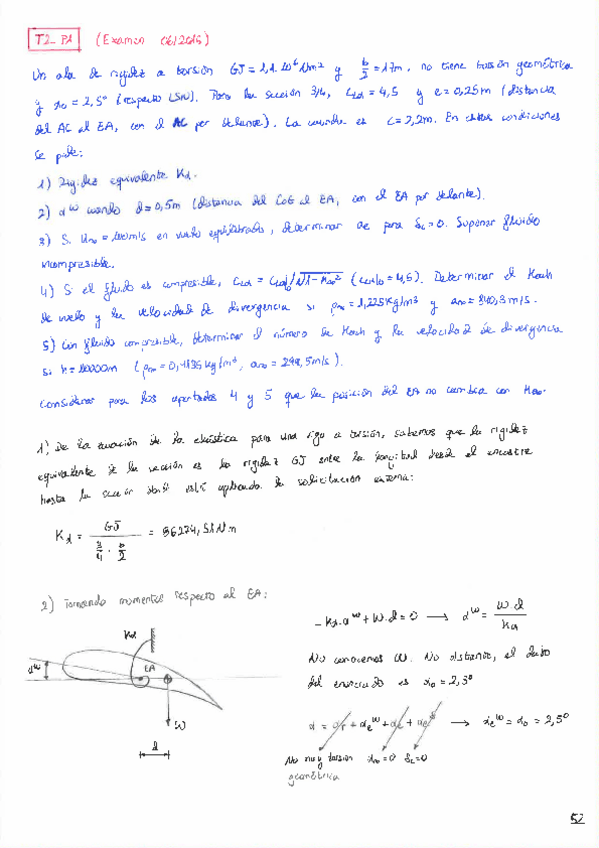 T2_P1 (Examen 06/2015)
Un ala de rigidez a torsión GJ = 1,1·10⁶ Nm² y b/2 = 17m, no tiene torsión geométrica
y α₀ = 2,5° (respecto LSN). Para la sección 3/4, = 4,5 y e = 0,25m (distancia
del AC al EA, con el AC por delante). La cuerda es c = 2,2m. En estas condiciones
se pide:
1) Rigidez equivalente Kα.
2) αᵂ cuando d = 0,5m (distancia del CdG al EA, con el EA por delante).
3) Si U∞ = m/s en vuelo equilibrado, determinar αe para δc = 0. Suponer fluido
incompresible.
4) Si el fluido es compresible, = /√1-M∞² ( = 4,5). Determinar el Mach
de vuelo y la velocidad de divergencia si ρ∞ = 1,225 kg/m³ y a∞ = 340,3 m/s.
5) Con fluido compresible, determinar el número de Mach y la velocidad de divergencia
si h = 10000m (ρ∞ = 0,4135 kg/m³, a∞ = 299,5 m/s).
Considerar para los apartados 4 y 5 que la posición del EA no cambia con M∞.
1) De la ecuación de la elástica para una viga a torsión, sabemos que la rigidez
equivalente de la sección es la rigidez GJ entre la longitud desde el encastre
hasta la sección donde está aplicada la solicitación externa:
Kα = GJ / (3/4 · b/2) = 86274,51 N·m
2) Tomando momentos respecto al EA:
-Kα·αᵂ + W·d = 0 → αᵂ = W·d / Kα
Kα
αᵂ
EA
W
d
No conocemos W. No obstante, el dato
del enunciado es α₀ = 2,5°
→ αeᵂ = α₀ = 2,5°
No hay torsión
geométrica
α∞ = 0
δc = 0
52